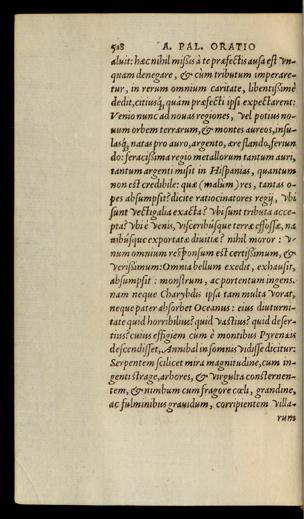 518 A. PAL. ORATIO
aluit: hæc nihil missis à te præfectis ausa est vn-
quam denegare, & cùm tributum imperare-
tur, in rerum omnium caritate, libentissimè
dedit, citiusq́, quàm præfecti ipsi expectarent:
Venio nunc ad nouas regiones, vel potius no-
uum orbem terrarum, & montes aureos, insu-
lasq́, natas pro auro, argento, ære flando, feriun
do: feracissima regio metallorum tantum auri,
tantum argenti misit in Hispanias, quantum
non est credibile: quæ (malum) res, tantas o-
pes absumpsit? dicite ratiocinatores regij, vbi
sunt vectigalia exacta? vbi sunt tributa acce-
pta? vbi è venis, visceribúsque terræ effossæ, na
uibúsque exportatæ diuitiæ? nihil moror: v-
num omnium responsum est certissimum, &
verissimum: Omnia bellum exedit, exhausit,
absumpsit: monstrum, ac portentum ingens.
nam neque Charybdis ipsa tam multa vorat,
neque pater absorbet Oceanus: eius diuturni-
tate quid horribilius? quid vastius? quid deser-
tius? cuius effigiem cùm è montibus Pyrenæis
descendisset, Annibal in somnis vidisse dicitur:
Serpentem scilicet mira magnitudine, cum in-
genti strage, arbores, & virgulta consternen-
tem, & nimbum cum fragore cœli, grandine,
ac fulminibus grauidum, corripientem villa-
rum